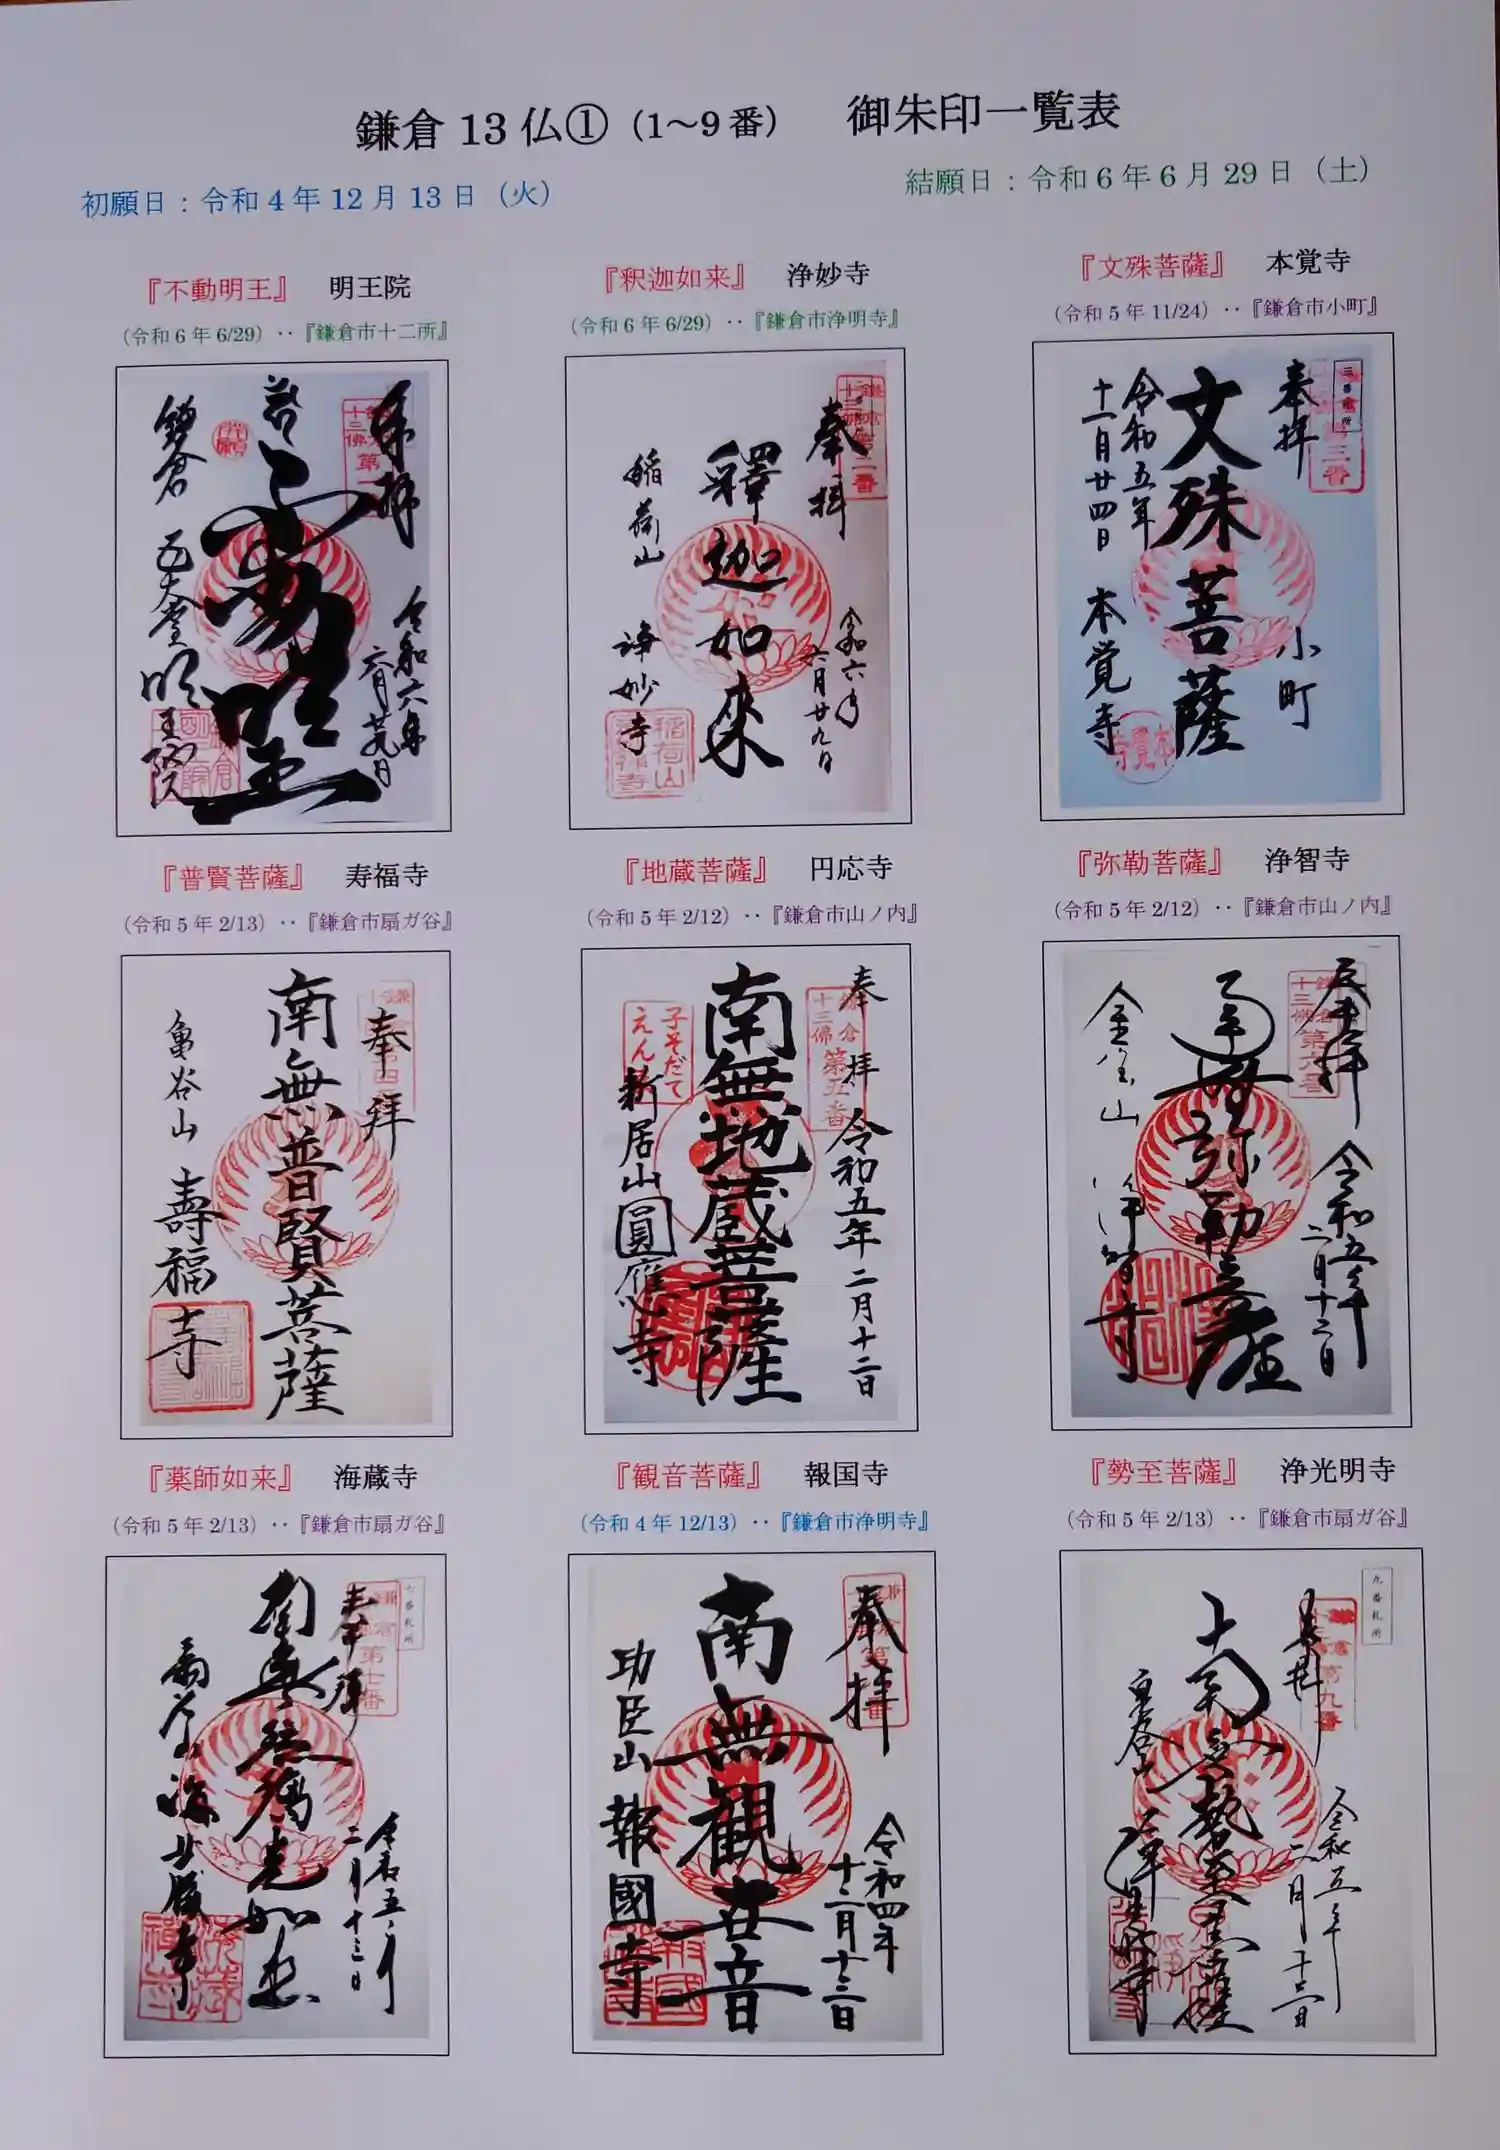 鎌倉 13 仏①（1～9 番）　御朱印一覧表
初願日：令和 4 年 12 月 13 日（火）　結願日：令和 6 年 6 月 29 日（土）
『不動明王』　明王院
（令和 6 年 6/29）‥『鎌倉市十二所』
『釈迦如来』　浄妙寺
（令和 6 年 6/29）‥『鎌倉市浄明寺』
『文殊菩薩』　本覚寺
（令和 5 年 11/24）‥『鎌倉市小町』
奉拝
令和六年
六月廿九日
鎌倉　五大堂　明王院
奉拝
令和六年
六月廿九日
釋迦如来
稲荷山　浄妙寺
三番霊所
奉拝　小町
文殊菩薩
令和五年
十一月廿四日　本覚寺
『普賢菩薩』　寿福寺
（令和 5 年 2/13）‥『鎌倉市扇ガ谷』
『地蔵菩薩』　円応寺
（令和 5 年 2/12）‥『鎌倉市山ノ内』
『弥勒菩薩』　浄智寺
（令和 5 年 2/12）‥『鎌倉市山ノ内』
奉拜
南無普賢菩薩
亀谷山　壽福寺
奉拝　令和五年二月十二日
鎌倉
十三佛
第五番
南無地蔵菩薩
子そだて
えん
新居山圓應寺
奉拝　令和五年
二月十二日
鎌倉
十三佛
第六番
南無弥勒菩薩
金宝山　浄智寺
『薬師如来』　海蔵寺
（令和 5 年 2/13）‥『鎌倉市扇ガ谷』
『観音菩薩』　報国寺
（令和 4 年 12/13）‥『鎌倉市浄明寺』
『勢至菩薩』　浄光明寺
（令和 5 年 2/13）‥『鎌倉市扇ガ谷』
七番札所
奉拝
第七番
二月十三日
扇谷山　海蔵寺
奉拝
令和四年
十二月十三日
南無観世音
功臣山　報國寺
九番札所
第九番
令和五年
二月十三日
南無勢至菩薩